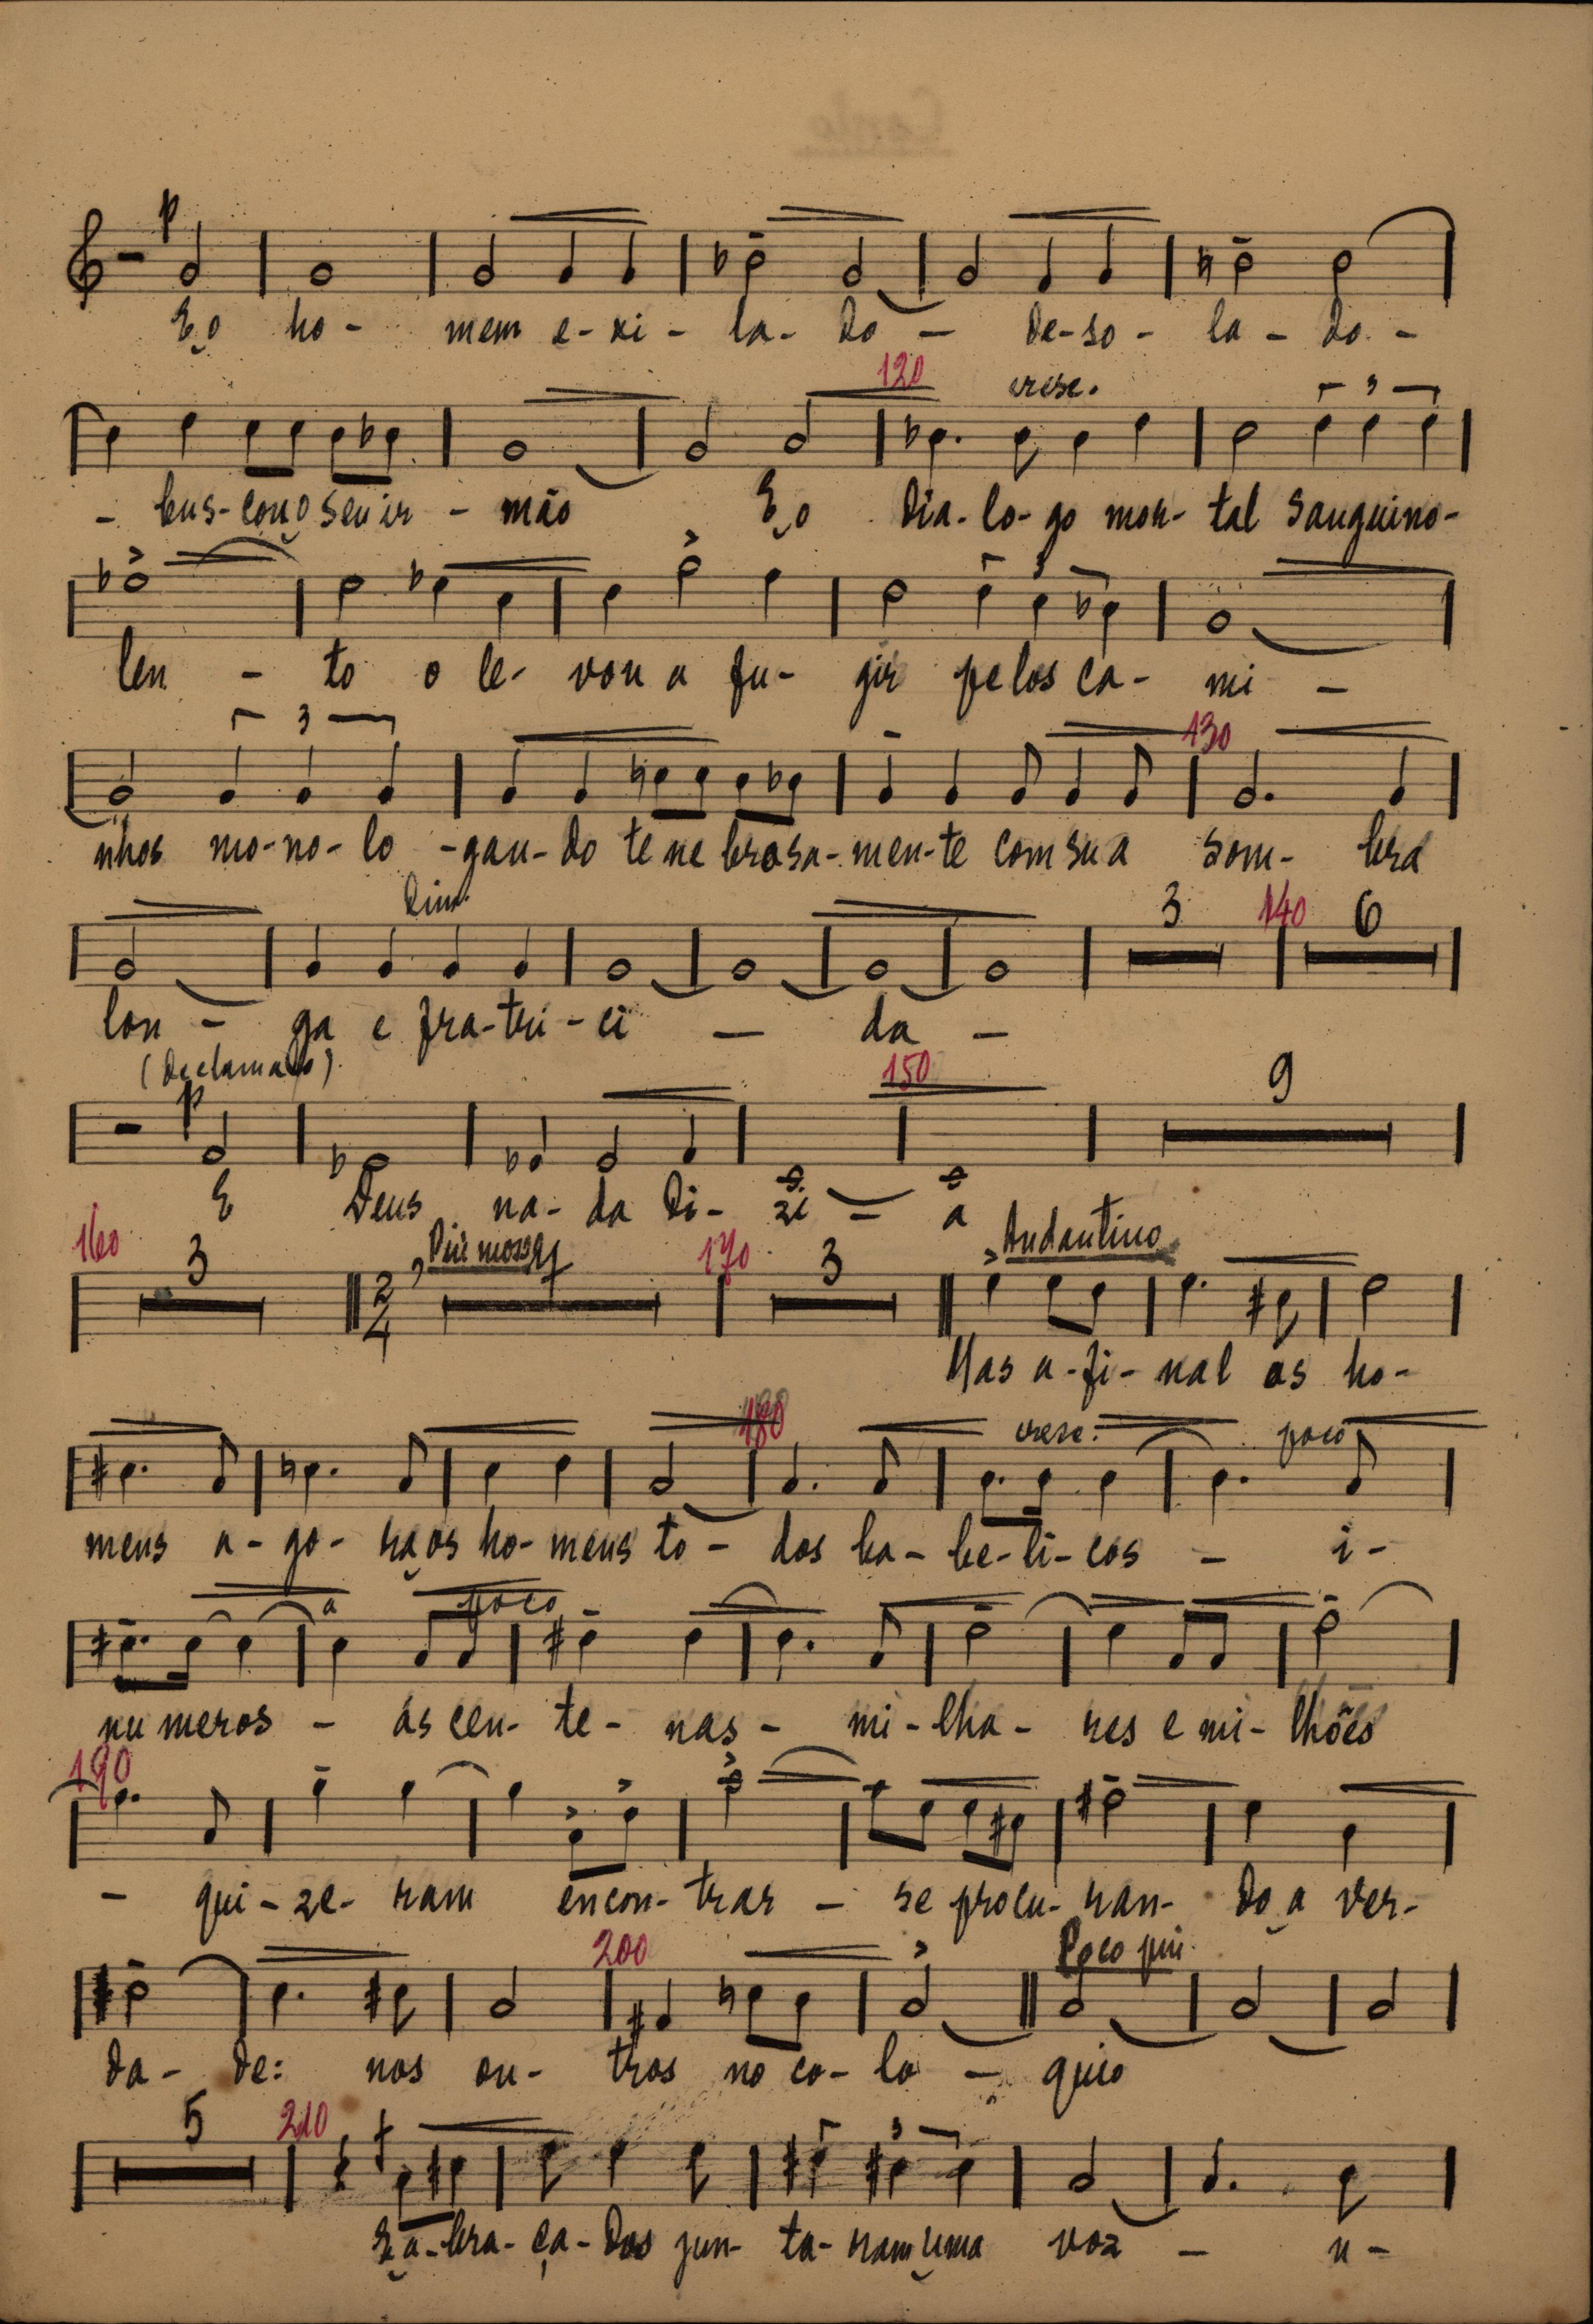 Canto
p
E o ho - mem e - xi - la - do - de - so - la - do -
120 cresc. 3
- bus - cou o seu ir - mão E o dia - lo - go mor - tal sanguino -
3
len - to o le - vou a fu - gir pelos ca - mi -
3 130
nhos mo - no - lo - gan - do te ne brosa - men - te com sua som - bra
Dim. 3 140 6
lon - ga e fra - tri - ci - da -
(Declamado) p 150 9
E Deus na - da di - zi - a
160 3 2/4 Più mosso 170 3 Andantino
Mas a - fi - nal os ho -
180 cresc. poco
mens a - go - ra os ho - mens to - dos ba - be - li - cos - i -
a poco
nu meros - as cen - te - nas - mi - lha - res e mi - lhões
190
- qui - ze - ram encon - trar - se procu - ran - do a ver -
200 Poco più
da - de: nos ou - tros no co - lo - quio
5 210 f 3
E a - bra - ça - dos jun - ta - ram uma voz - u -